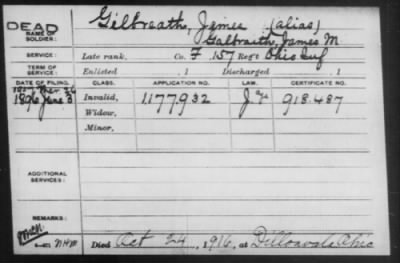 DEAD
NAME OF SOLDIER: Gilbreath, Jemee (alias)
Galbraith, James M
SERVICE: Late rank, Co. F, 157 Reg't Ohio Inf
TERM OF SERVICE: Enlisted 1 Discharged 1
DATE OF FILING. CLASS. APPLICATION NO. LAW. CERTIFICATE NO.
1896 June 3 Invalid, 1177,932 918.487
Widow,
Minor,
ADDITIONAL SERVICES:
REMARKS:
Died Oct 24, 1916, at Dillonvale Ohio